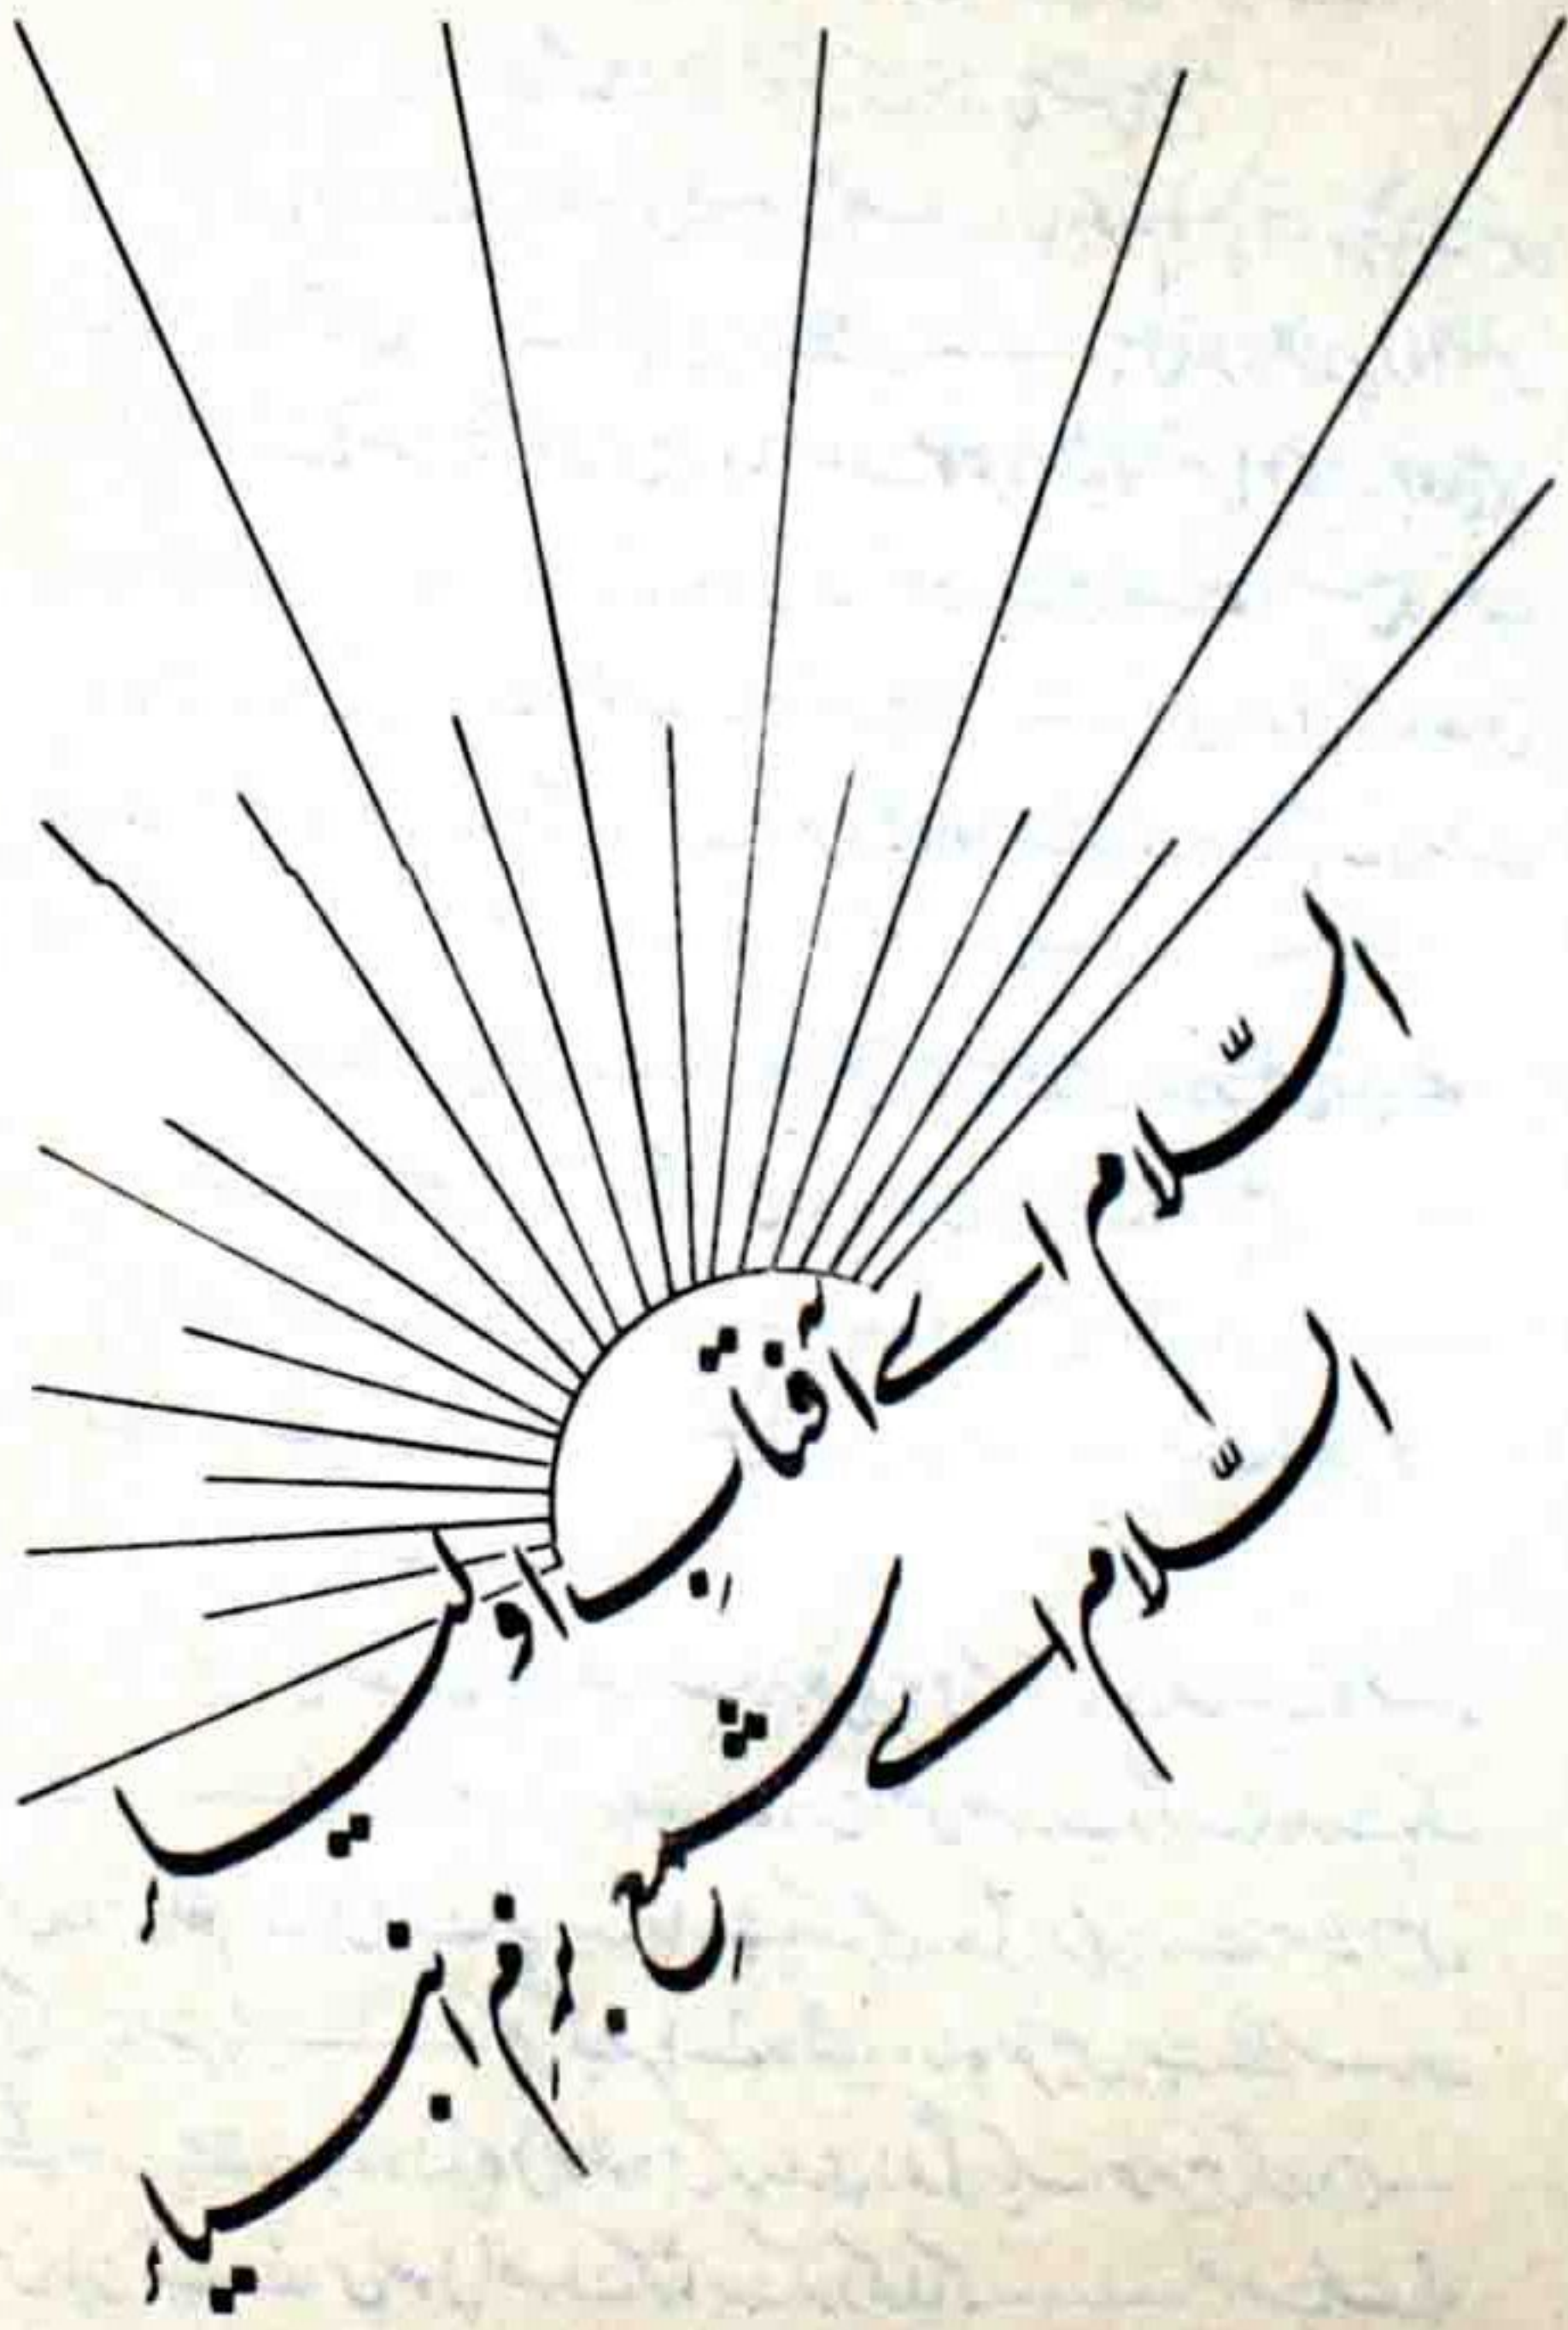 السّلام اے آفتابِ اولیاء
السّلام اے شمعِ بزمِ انبیاء